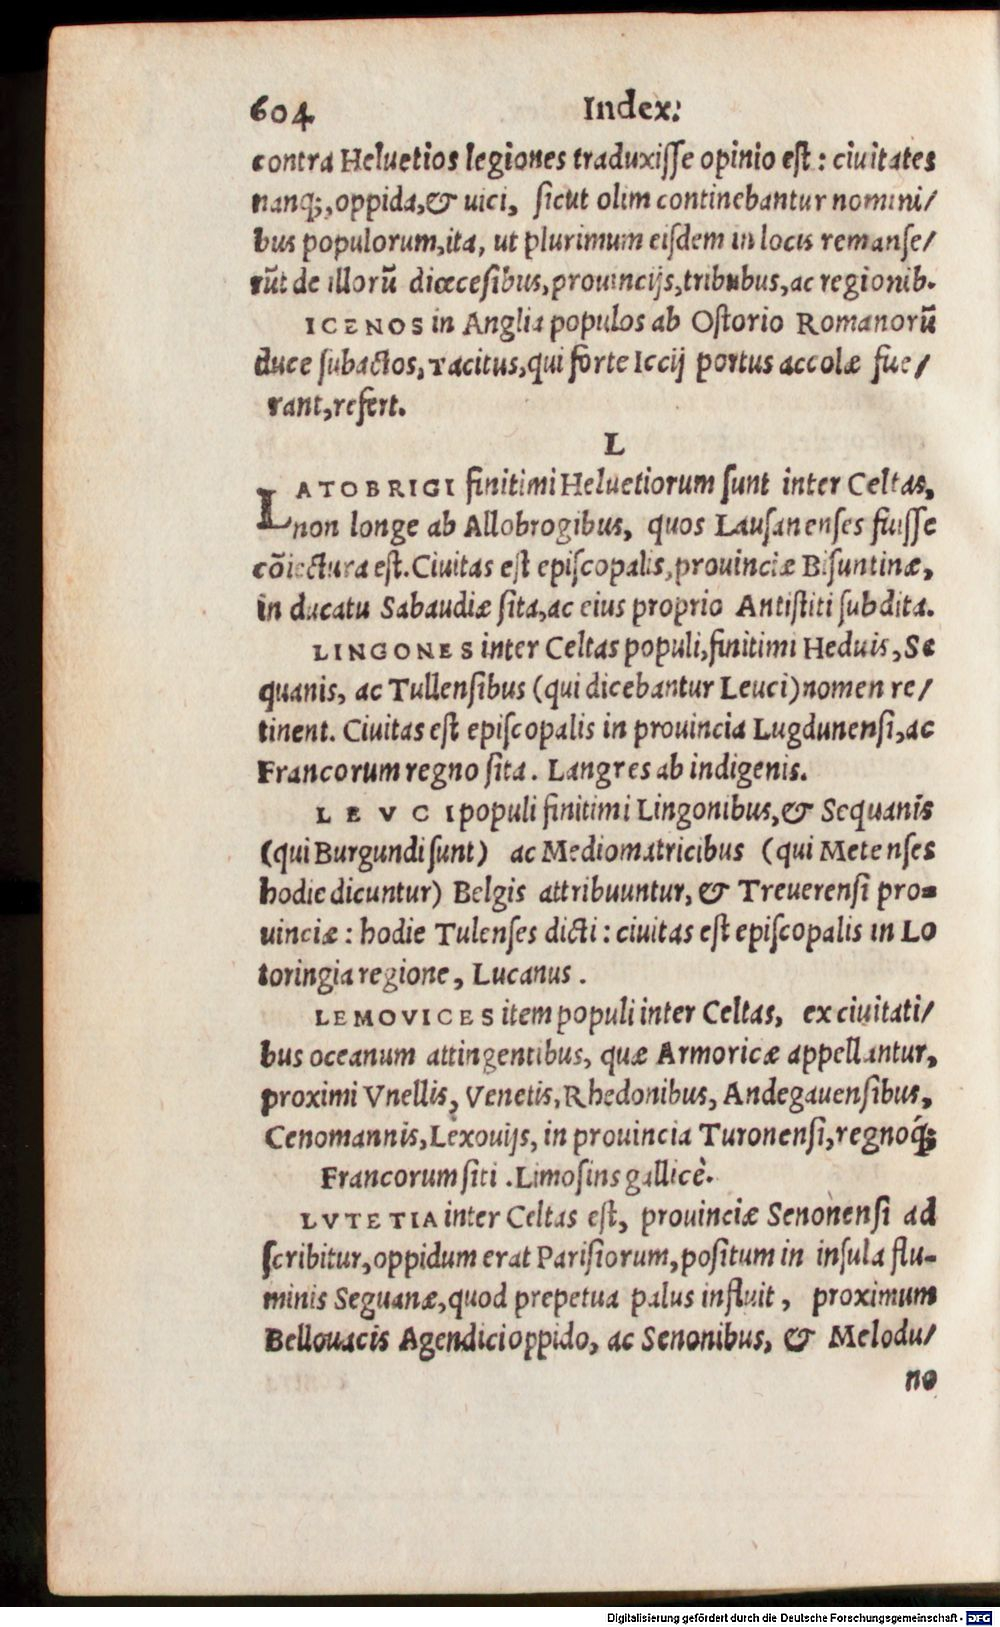 604 Index.
contra Heluetios legiones traduxisse opinio est: ciuitates
nanq;, oppida, & uici, sicut olim continebantur nomini/
bus populorum, ita, ut plurimum eisdem in locis remanse/
rũt de illorũ diœcesibus, prouincijs, tribubus, ac regionib.
ICENOS in Anglia populos ab Ostorio Romanorũ
duce subactos, Tacitus, qui forte Iccij portus accolæ fue/
rant, refert.
L
LATOBRIGI finitimi Heluetiorum sunt inter Celtas,
non longe ab Allobrogibus, quos Lausanenses fuisse
cõiectura est. Ciuitas est episcopalis, prouinciæ Bisuntinæ,
in ducatu Sabaudiæ sita, ac eius proprio Antistiti subdita.
LINGONES inter Celtas populi, finitimi Heduis, Se
quanis, ac Tullensibus (qui dicebantur Leuci) nomen re/
tinent. Ciuitas est episcopalis in prouincia Lugdunensi, ac
Francorum regno sita. Langres ab indigenis.
LEVCI populi finitimi Lingonibus, & Sequanis
(qui Burgundi sunt) ac Mediomatricibus (qui Metenses
hodie dicuntur) Belgis attribuuntur, & Treuerensi pro=
uinciæ: hodie Tulenses dicti: ciuitas est episcopalis in Lo
toringia regione, Lucanus.
LEMOVICES item populi inter Celtas, ex ciuitati/
bus oceanum attingentibus, quæ Armoricæ appellantur,
proximi Vnellis, Venetis, Rhedonibus, Andegauensibus,
Cenomannis, Lexouijs, in prouincia Turonensi, regnoq́;
Francorum siti. Limosins gallicè.
LVTETIA inter Celtas est, prouinciæ Senonensi ad
scribitur, oppidum erat Parisiorum, positum in insula flu-
minis Seguanæ, quod prepetua palus influit, proximum
Bellouacis Agendici oppido, ac Senonibus, & Melodu/
no
Digitalisierung gefördert durch die Deutsche Forschungsgemeinschaft - DFG